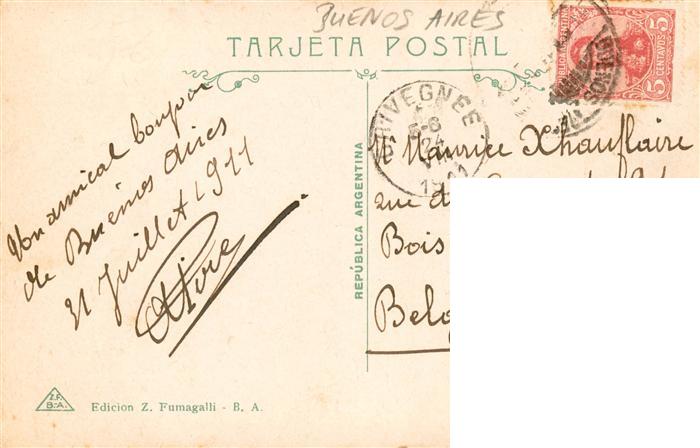 BUENOS AIRES
TARJETA POSTAL
REPÚBLICA ARGENTINA
5 CENTAVOS 5
GRIVEGNEE
5-6
24
1911
Mon amical bonjour
de Buenos Aires
31 Juillet 1911
REPÚBLICA ARGENTINA
Mr Maurice Xhauflaire
rue de
Bois
Belg
Z.F.
B.A.
Edicion Z. Fumagalli - B. A.